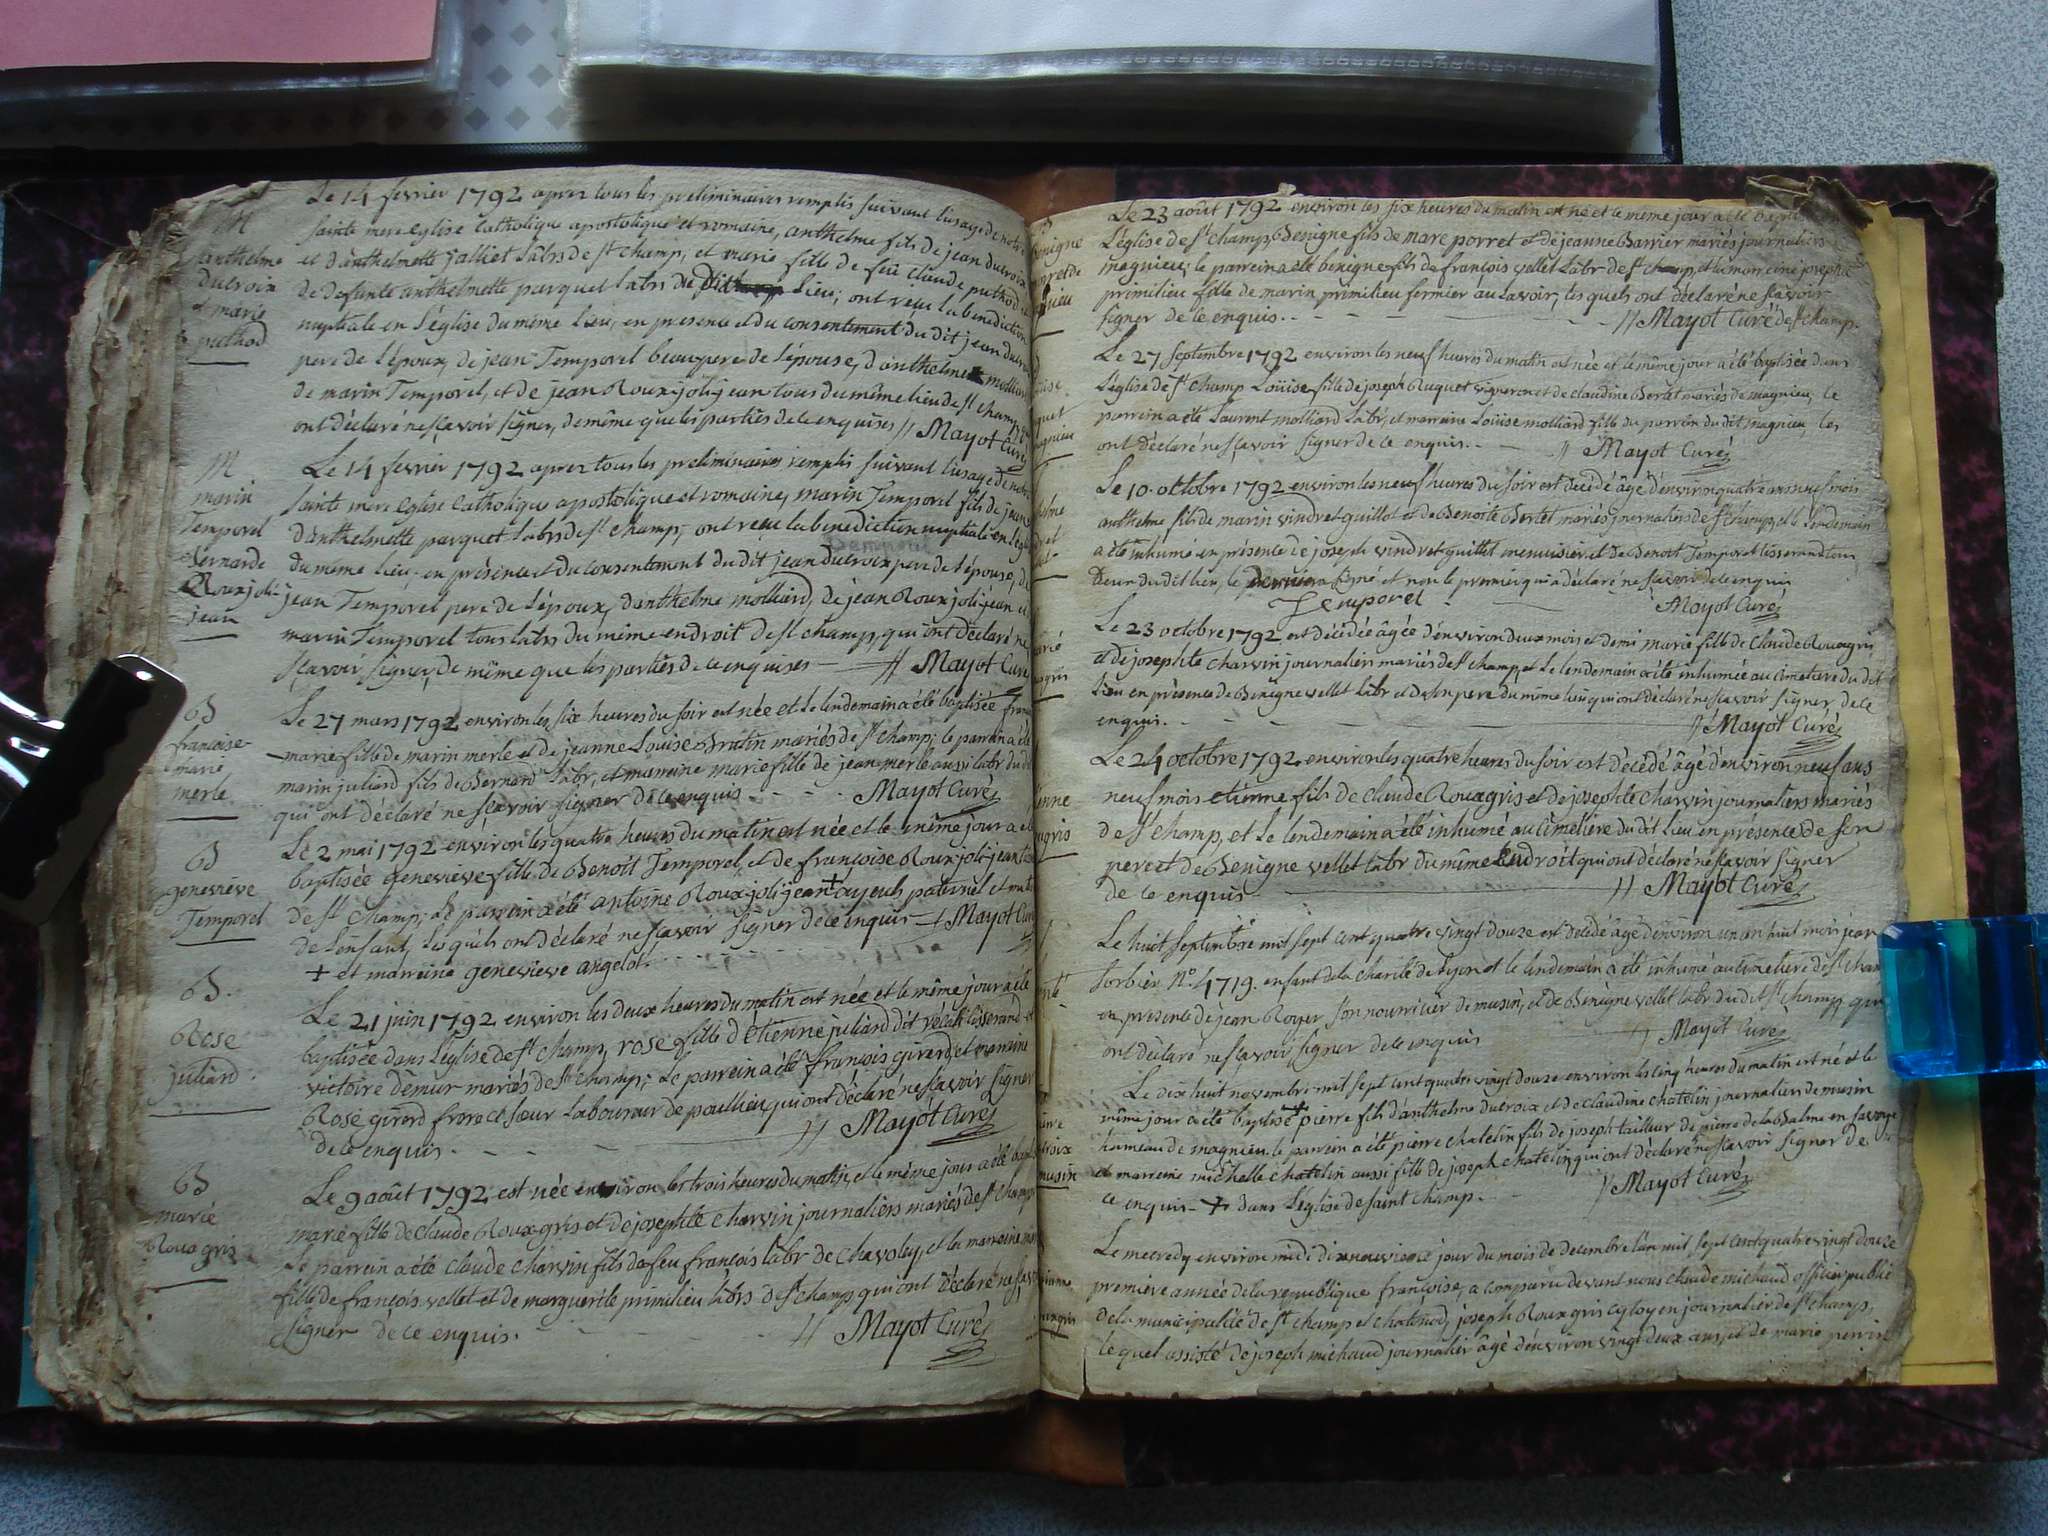 Le 14 fevrier 1792 apres tous les preliminaires remplis suivant l'usage de notre
M
sainte mere eglise Catholique apostolique et romaine, anthelme fils de jean ducroix
anthelme
et d'anthelmette jalliet labrs de st champ, et marie fille de feu claude puthod et
ducroix
de defunte anthelmette parquet labrs du dit lieu; ont reçu la benediction
et marie
nuptiale en l'église du même lieu, en presence et du consentement du dit jean ducroix
puthod
pere de l'époux, de jean Temporel beaupere de l'épouse, d'anthelme molliard
de marin Temporel, et de jean Roux joli-jean tous du même lieu de st champ, qui
ont déclaré ne sçavoir signer, de même que les parties de ce enquises // Mayot Curé
M
Le 14 fevrier 1792 apres tous les preliminaires remplis suivant l'usage de notre
marin
sainte mere eglise Catholique apostolique et romaine, marin Temporel fils de jean et
Temporel
d'anthelmette parquet labrs de st champ; ont reçu la benediction nuptiale en l'eglise
Bernarde
du meme lieu; en présence et du consentement du dit jean ducroix pere de l'épouse, de
Roux joli-
jean Temporel pere de l'époux, d'anthelme molliard, de jean Roux joli-jean et
jean
marin Temporel tous labrs du même endroit de st champ, qui ont déclaré ne
sçavoir signer, de même que les parties de ce enquises — // Mayot Curé
B
Le 27 mars 1792 environ les six heures du soir est née et le lendemain a été baptisée françoise
françoise
marie fille de marin merle et de jeanne Louise Brutin mariés de st champ; le parrein a été
marie
marin juliard fils de Bernard labr, et marreine marie fille de jean merle aussi labr du dit
merle
qui ont déclaré ne sçavoir signer de ce enquis - - - - Mayot Curé
B
Le 2 mai 1792 environ les quatre heures du matin est née et le même jour a été
genevieve
baptisée genevieve fille de Benoît Temporel, et de françoise Roux joli-jean labrs
Temporel
de st champ; le parrein a été antoine Roux joli-jean + ayeuls paternel et mat.
de l'enfant, lesquels ont déclaré ne sçavoir signer de ce enquis — // Mayot Curé
+ et marreine genevieve angelot. - - - -
B.
Le 21 juin 1792 environ les deux heures du matin est née et le même jour a été
Rose
baptisée dans l'église de st champ, rose fille d'Etienne juliard dit tisserand et
juliard
victoire démur mariés de st champ; le parrein a été françois girerd, et marreine
Rose girerd frere et sœur laboureur de poullieu, qui ont déclaré ne sçavoir signer
de ce enquis. - - - // Mayot Curé
B
Le 9 août 1792 est née environ les trois heures du matin, et le même jour a été bapt.
marie
marie fille de claude Roux gris et de josephte charvin journaliers mariés de st champ
Roux gris
le parrein a été claude charvin fils de feu françois labr de chavoley, et la marreine marie
fille de françois vellet et de marguerite primilieu labrs de st champ qui ont déclaré ne sçavoir
signer de ce enquis. - - - - // Mayot Curé
Le 23 août 1792 environ les six heures du matin est né et le meme jour a été baptisé en
L'église de st champ, Benigne fils de marc porret et de jeanne Barrier mariés journaliers
magnieu; le parrein a été benigne fils de françois vellet labr de st champ, et la marreine josephte
primilieu fille de marin primilieu fermier au lavoir, lesquels ont déclaré ne sçavoir
signer de ce enquis. - - - - - // Mayot Curé de st champ.
Le 27 septembre 1792 environ les neuf heures du matin est née et le même jour a été baptisée dans
L'église de st champ Louise fille de joseph Ruquet vigneron et de claudine Bertet mariés de magnieu; le
parrein a été Laurent molliard labr, et marreine Louise molliard fille du parrein du dit magnieu, les
ont déclaré ne sçavoir signer de ce enquis. - // Mayot Curé
Le 10. octobre 1792 environ les neuf heures du soir est décédé âgé d'environ quatre ans neuf mois
anthelme fils de marin vindret-guillot et de Benoite Bertet mariés journaliers de st champ, et le lendemain
a été inhumé en présence de joseph vindret-guillot menuisier, et de Benoît Temporel tisserand tous
deux du dit lieu, le dernier a signé et non le premier qui a déclaré ne sçavoir de ce enquis
Temporel - Mayot Curé
Le 23 octobre 1792 est décédée âgée d'environ deux mois et demi marie fille de Claude Rouxgris
et de josephte charvin journaliers mariés de st champ, et le lendemain a été inhumée au cimetiere du dit
Lieu en présence de Benigne vellet labr et de son pere du même lieu qui ont déclaré ne sçavoir signer de ce
enquis. - - - - // Mayot Curé
Le 24 octobre 1792. environ les quatre heures du soir est décédé âgé d'environ neuf ans
neuf mois etienne fils de claude Rouxgris et de josephte charvin journaliers mariés
de st champ, et le lendemain a été inhumé au cimetiére du dit lieu en présence de son
pere et de Benigne vellet labr du même endroit qui ont déclaré ne sçavoir signer
de ce enquis — // Mayot Curé
Le huit septembre mil sept cent quatre vingt douze est décédé âgé d'environ un an huit mois jean
Sorbier N° 4719. enfant de la charité de Lyon et le lendemain a été inhumé au cimetiere de st champ
en presence de jean Royer son nourricier de musin, et de Benigne vellet labr du dit st champ, qui
ont déclaré ne sçavoir signer de ce enquis // Mayot Curé
Le dix huit novembre mil sept cent quatre vingt douze environ les cinq heures du matin est né et le
même jour a été baptisé + pierre fils d'anthelme ducroix et de claudine chatelin journaliers de musin
hameau de magnieu. le parrein a été pierre chatelin fils de joseph tailleur de pierre de la Balme en savoye
et marreine michelle chatelin aussi fille de joseph chatelin qui ont déclaré ne sçavoir signer de
ce enquis - + dans l'église de saint champ. - // Mayot Curé
Le mecredy environ midi dixneuvieme jour du mois de decembre l'an mil sept cent quatre vingt douze
premiere année de la republique françoise, a comparu devant nous claude michaud officier public
de la municipalité de st champ et chatonod, joseph Rouxgris cytoyen journalier de st champ,
le quel assisté de joseph michaud journalier âgé d'environ vingt deux ans, et de marie perrin